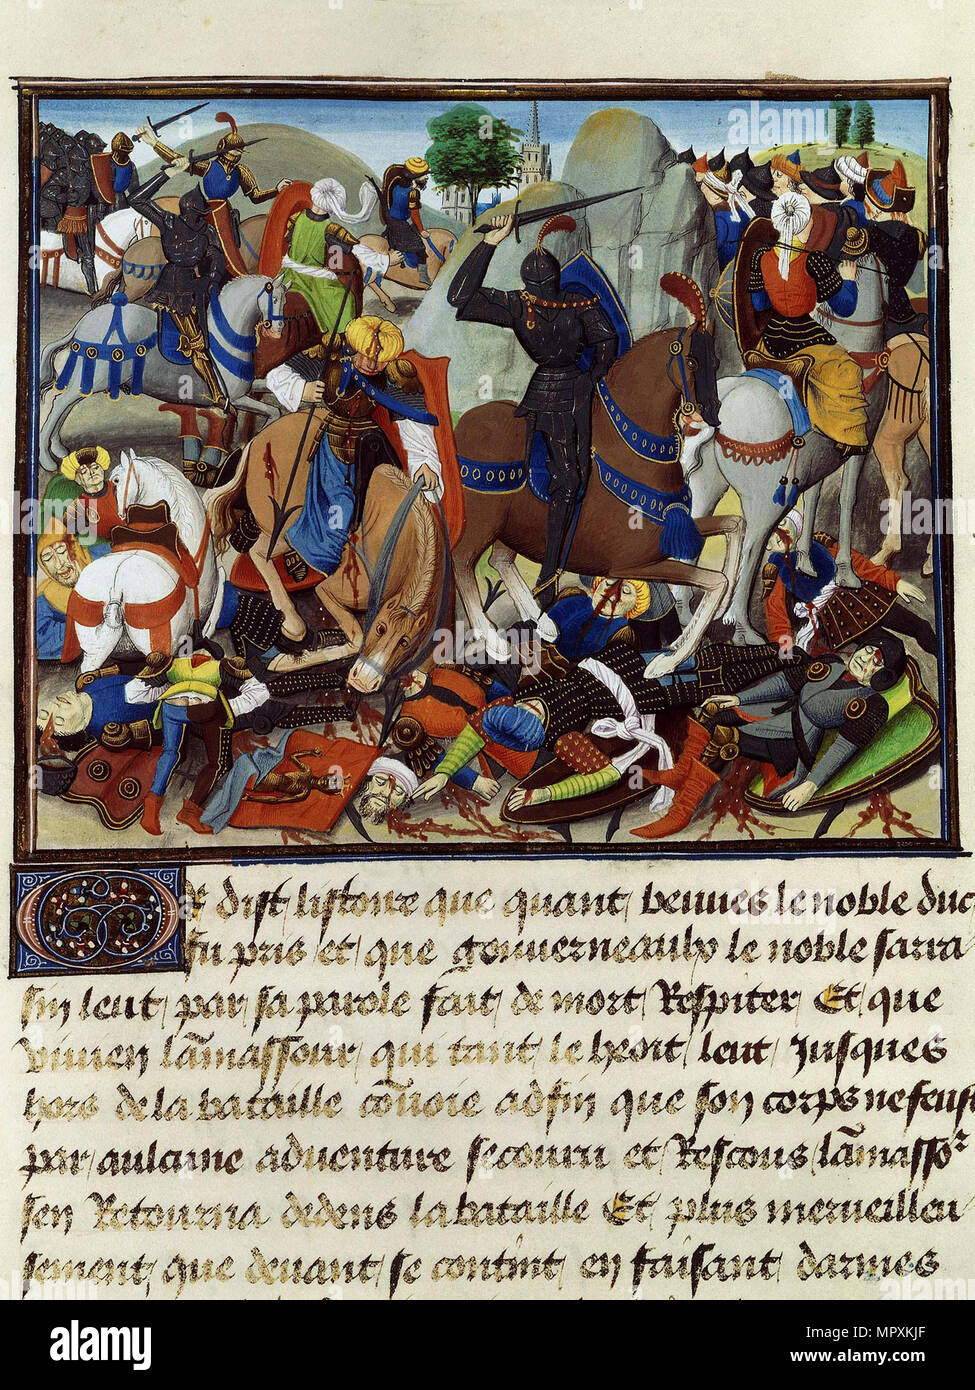 Or dist listoire que quant beuues le noble duc
fu pris et que gouuerneaulx le noble sarra-
sin leut par sa parole fait de mort Respiter Et que
viuien lamassour qui tant le heoit leut Jusques
hors de la bataille conuoie adfin que son corps ne feust
par aulcune aduenture secouru et Rescous lamassor
sen Retourna dedens la bataille Et plus merueilleu
sement que deuant se contint en faisant darmes
alamy
Image ID: MPXKJF
www.alamy.com